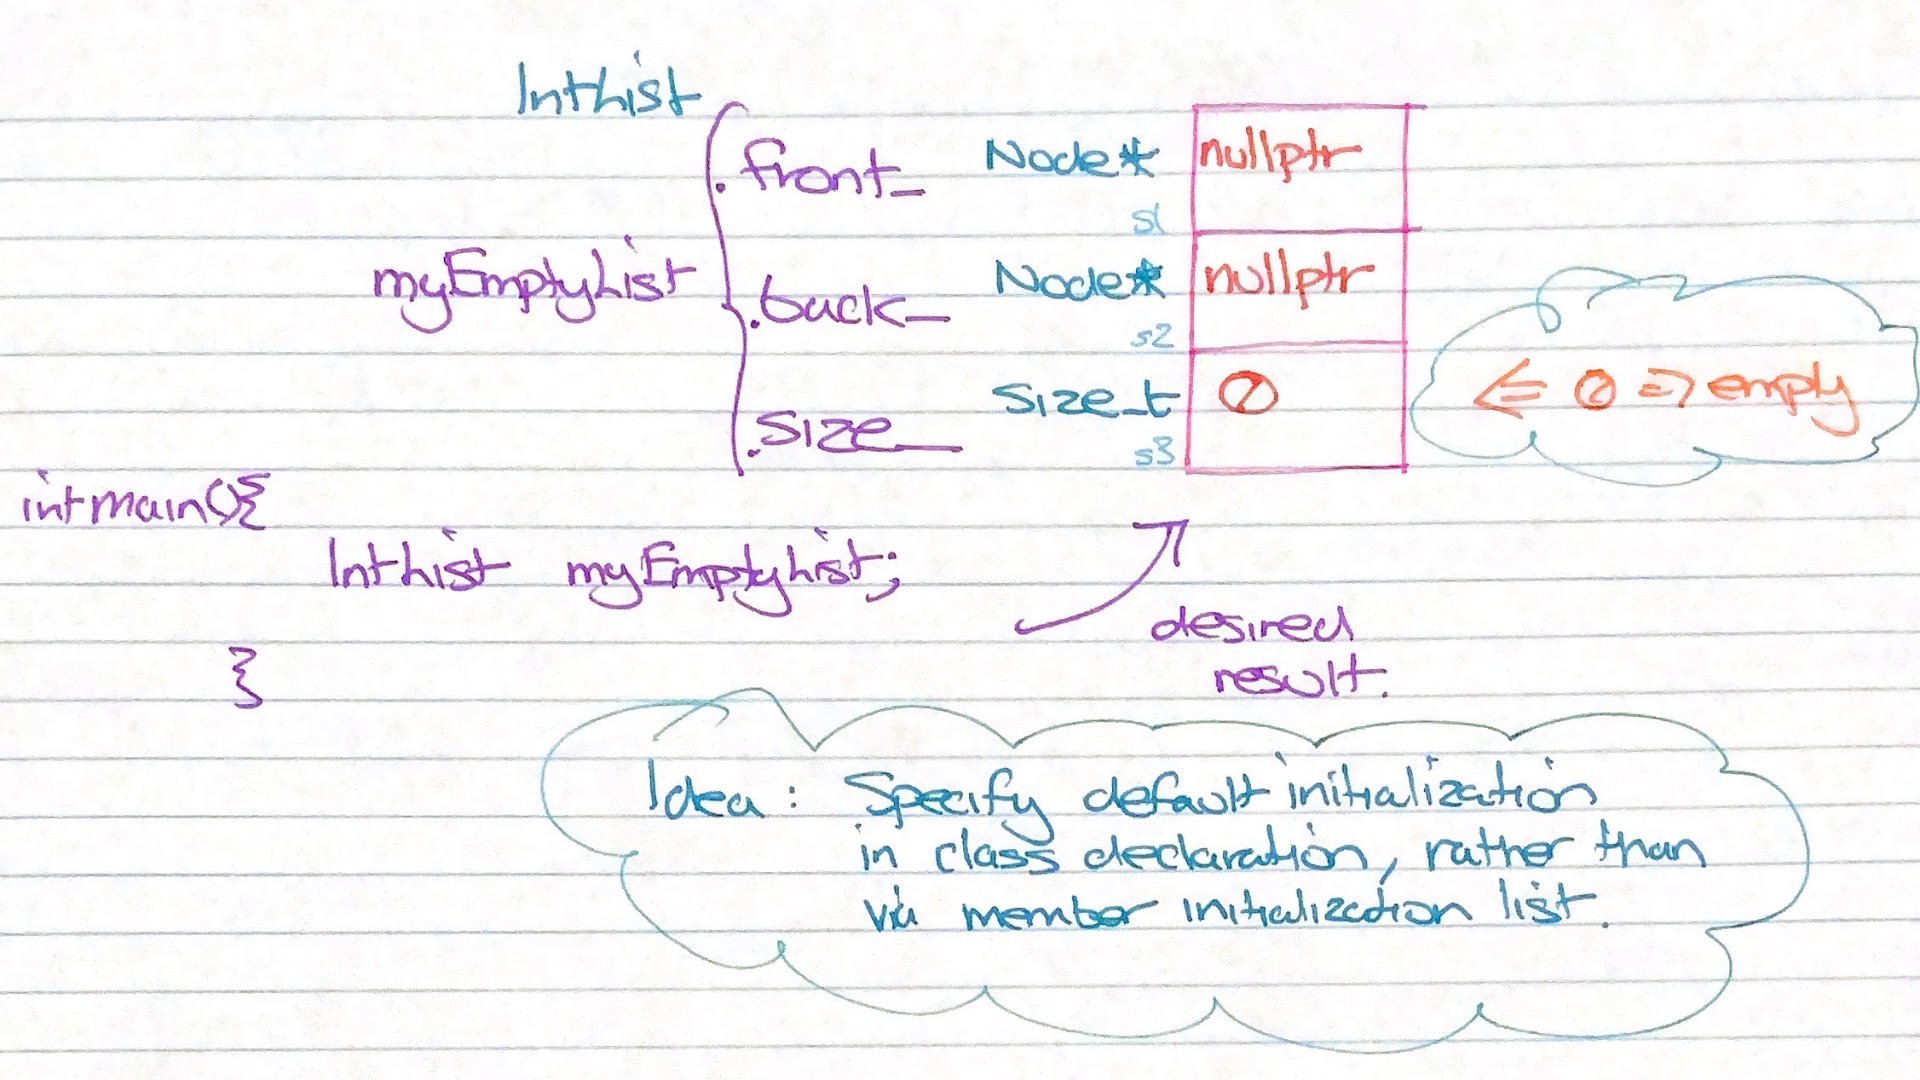 IntList
.front_ Node* nullptr
s1
myEmptyList .back_ Node* nullptr
s2
.size_ size_t 0 <= 0 => empty
s3
int main(){
IntList myEmptyList;
}
desired
result.
Idea: Specify default initialization
in class declaration, rather than
via member initialization list.